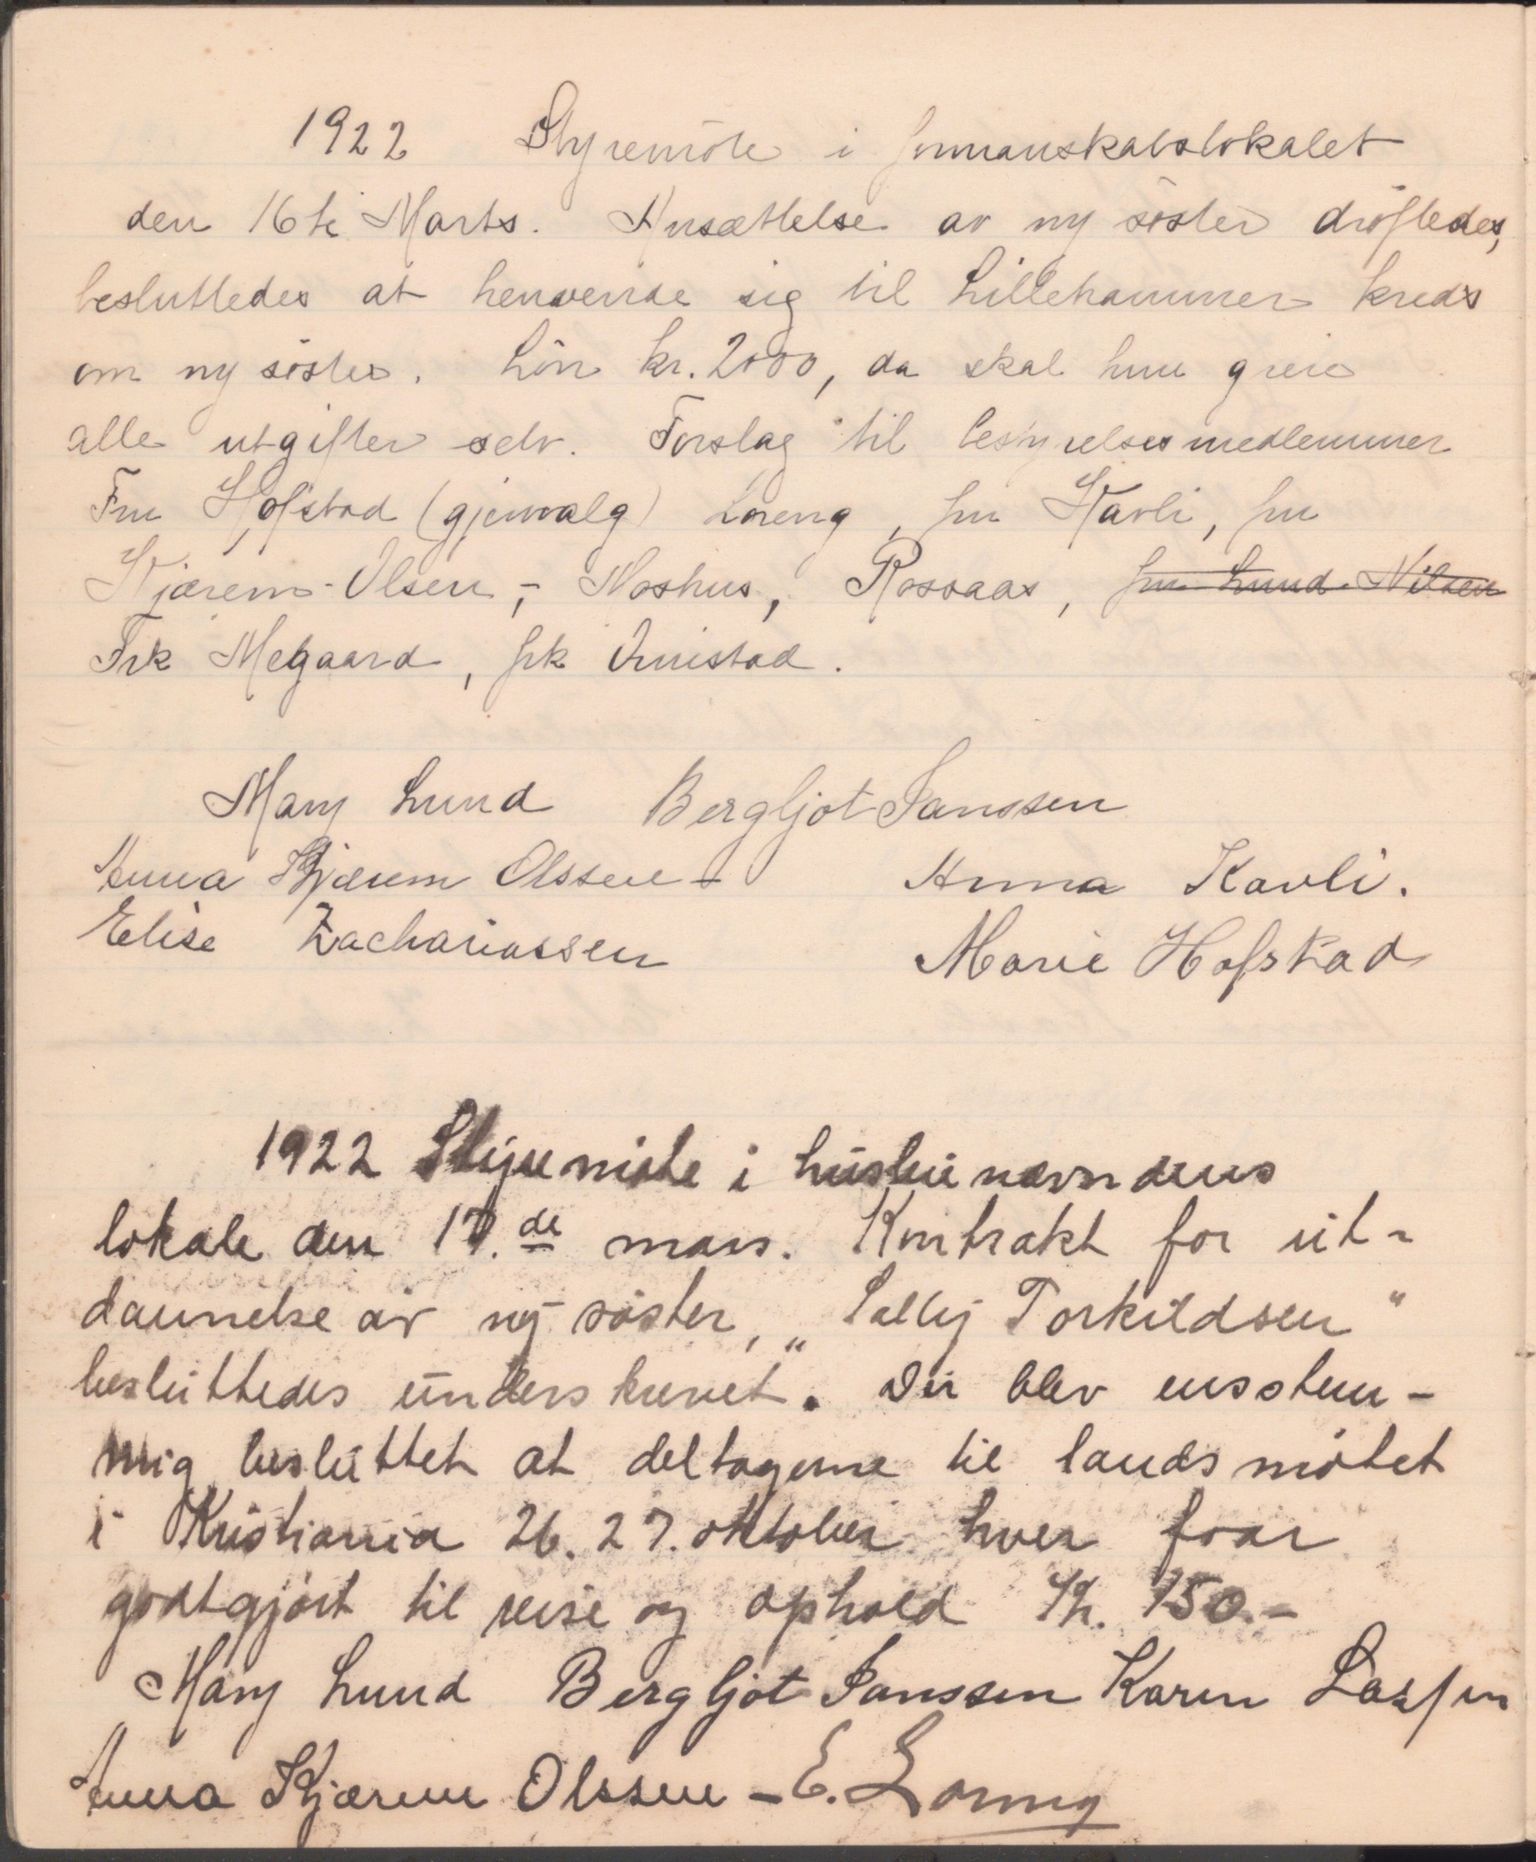 1922 Styremöte i formanskabslokalet
den 16te Marts. Ansættelse av ny söster dröftedes,
besluttedes at henvende sig til Lillehammer kreds
om ny söster. Lön kr. 2000, da skal hun greie
alle utgifter selv. Forslag til bestyrelsesmedlemmer
Fru Hofstad (gjenvalg) Loreng, fru Kavli, fru
Kjærem-Olsen, - Moshus, Rosvaas, fru Lund-Nilsen
Frk Melgaard, frk Omistad.
Mary Lund Bergljot Janssen
Anna Kjærem Olssen - Anna Kavli.
Elise Zachariassen
Marie Hofstad
1922 Styremöte i husleienævndens
lokale den 17.de mars. Kontrakt for ut-
dannelse av ny söster, „Solly Torkildsen“
besluttedes underskrevet. Det blev enstem-
mig besluttet at deltagerne til landsmötet
i Kristiania 26. 27. oktober hver faar
godtgjört til reise og ophold Kr. 150.-
Mary Lund Bergljot Janssen Karen
Anna Kjærem Olssen - E. Loreng